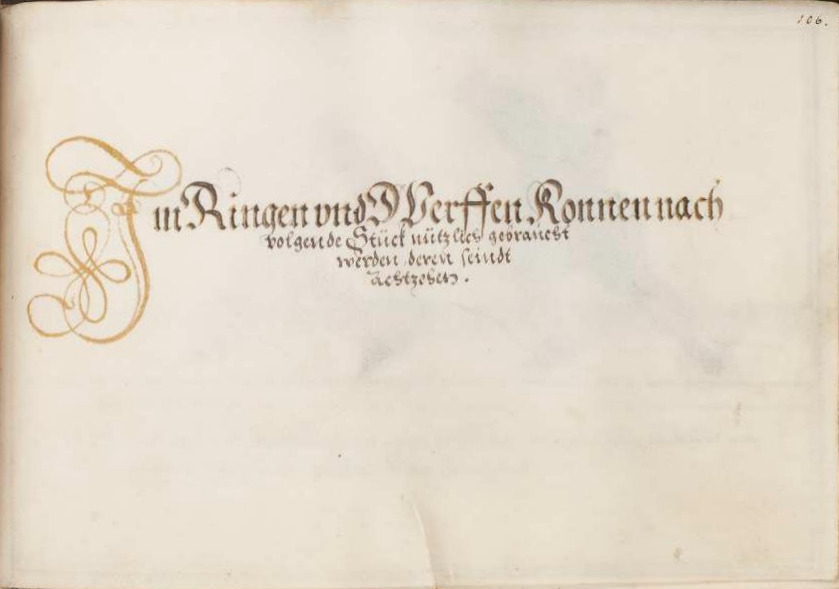 106.
Im Ringen vnd Werffen Konnen nach
volgende Stück nützlich gebraucht
werden deren seindt
Achtzehen.